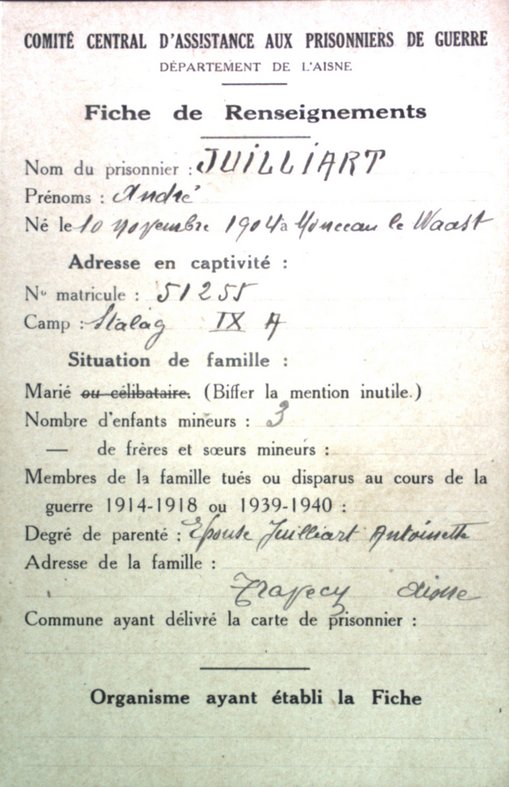 COMITÉ CENTRAL D'ASSISTANCE AUX PRISONNIERS DE GUERRE
DÉPARTEMENT DE L'AISNE
Fiche de Renseignements
Nom du prisonnier : JUILLIART
Prénoms : André
Né le 10 novembre 1904 à Monceau le Waast
Adresse en captivité :
N° matricule : 51255
Camp : Stalag IX A
Situation de famille :
Marié ou célibataire. (Biffer la mention inutile.)
Nombre d'enfants mineurs : 3
— de frères et sœurs mineurs :
Membres de la famille tués ou disparus au cours de la
guerre 1914-1918 ou 1939-1940 :
Degré de parenté : Epouse Juilliart Antoinette
Adresse de la famille :
Travecy Aisne
Commune ayant délivré la carte de prisonnier :
Organisme ayant établi la Fiche